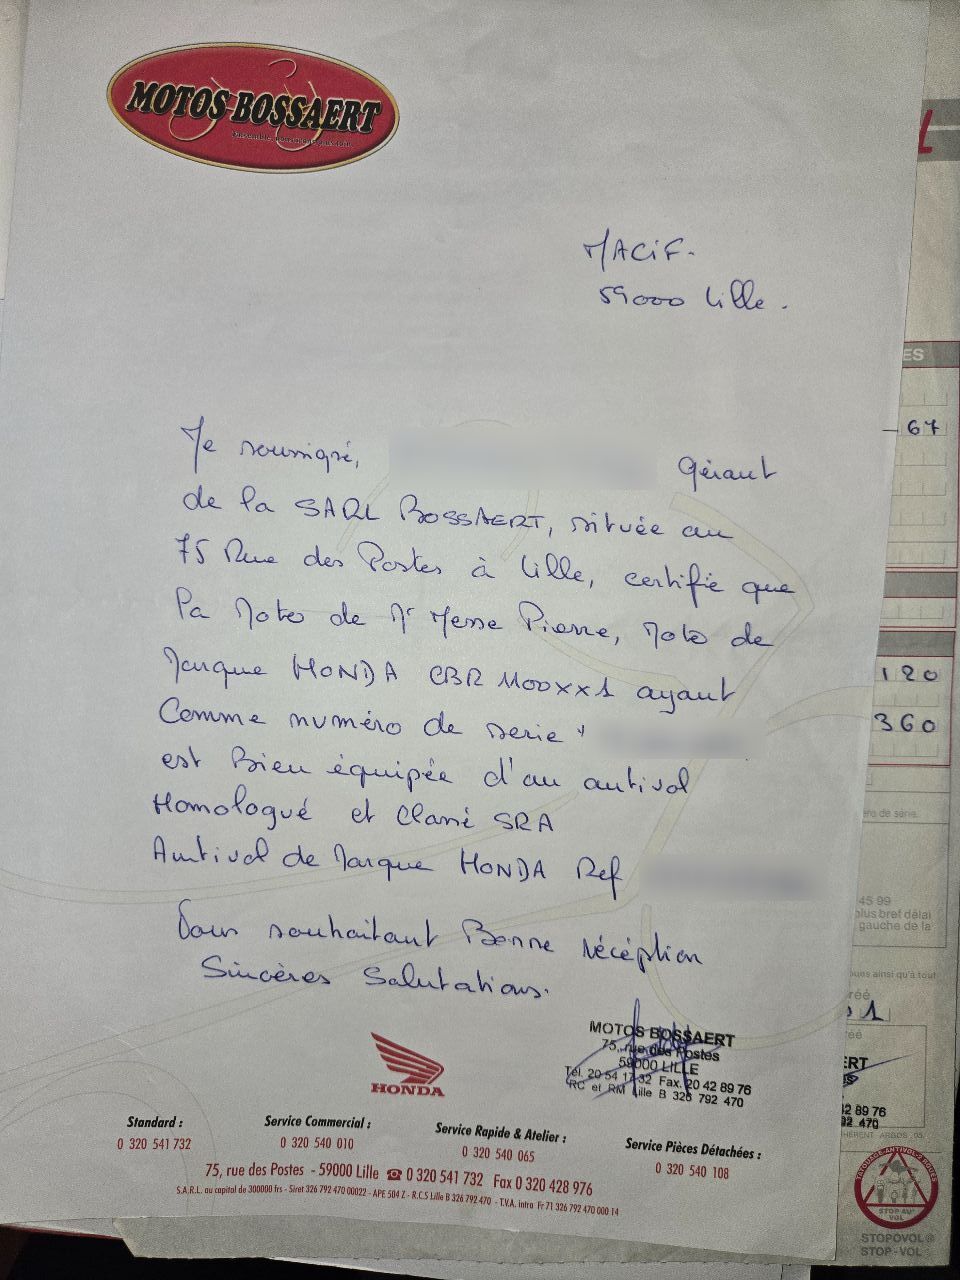 MOTOS BOSSAERT
MACIF.
59000 Lille.
Je soussigné, Gérant
de la SARL BOSSAERT, située au
75 Rue des Postes à Lille, certifie que
la Moto de Mr Messe Pierre, Moto de
Marque HONDA CBR 1100XX1 ayant
Comme numéro de serie
est Bien équipée d'un antivol
Homologué et Classé SRA
Antivol de Marque HONDA Ref
Vous souhaitant Bonne réception
Sincères Salutations.
MOTOS BOSSAERT
75, rue des Postes
59000 LILLE
Tél. 20 54 17 32 Fax. 20 42 89 76
RC et RM Lille B 326 792 470
HONDA
Standard :
0 320 541 732
Service Commercial :
0 320 540 010
Service Rapide & Atelier :
0 320 540 065
Service Pièces Détachées :
0 320 540 108
75, rue des Postes - 59000 Lille ☎ 0 320 541 732 Fax 0 320 428 976
S.A.R.L. au capital de 300000 frs - Siret 326 792 470 00022 - APE 504 Z - R.C.S Lille B 326 792 470 - T.V.A. intra Fr 71 326 792 470 000 14
ES
67
120
360
ro de série.
45 99
plus bref délai
gauche de la
ques ainsi qu'à tout
réé
1
ERT
2 89 76
92 470
HERENT ARGOS
TATOUAGE-ANTIVOL-2 ROUES
STOP AU
VOL
STOPOVOL®
STOP-VOL